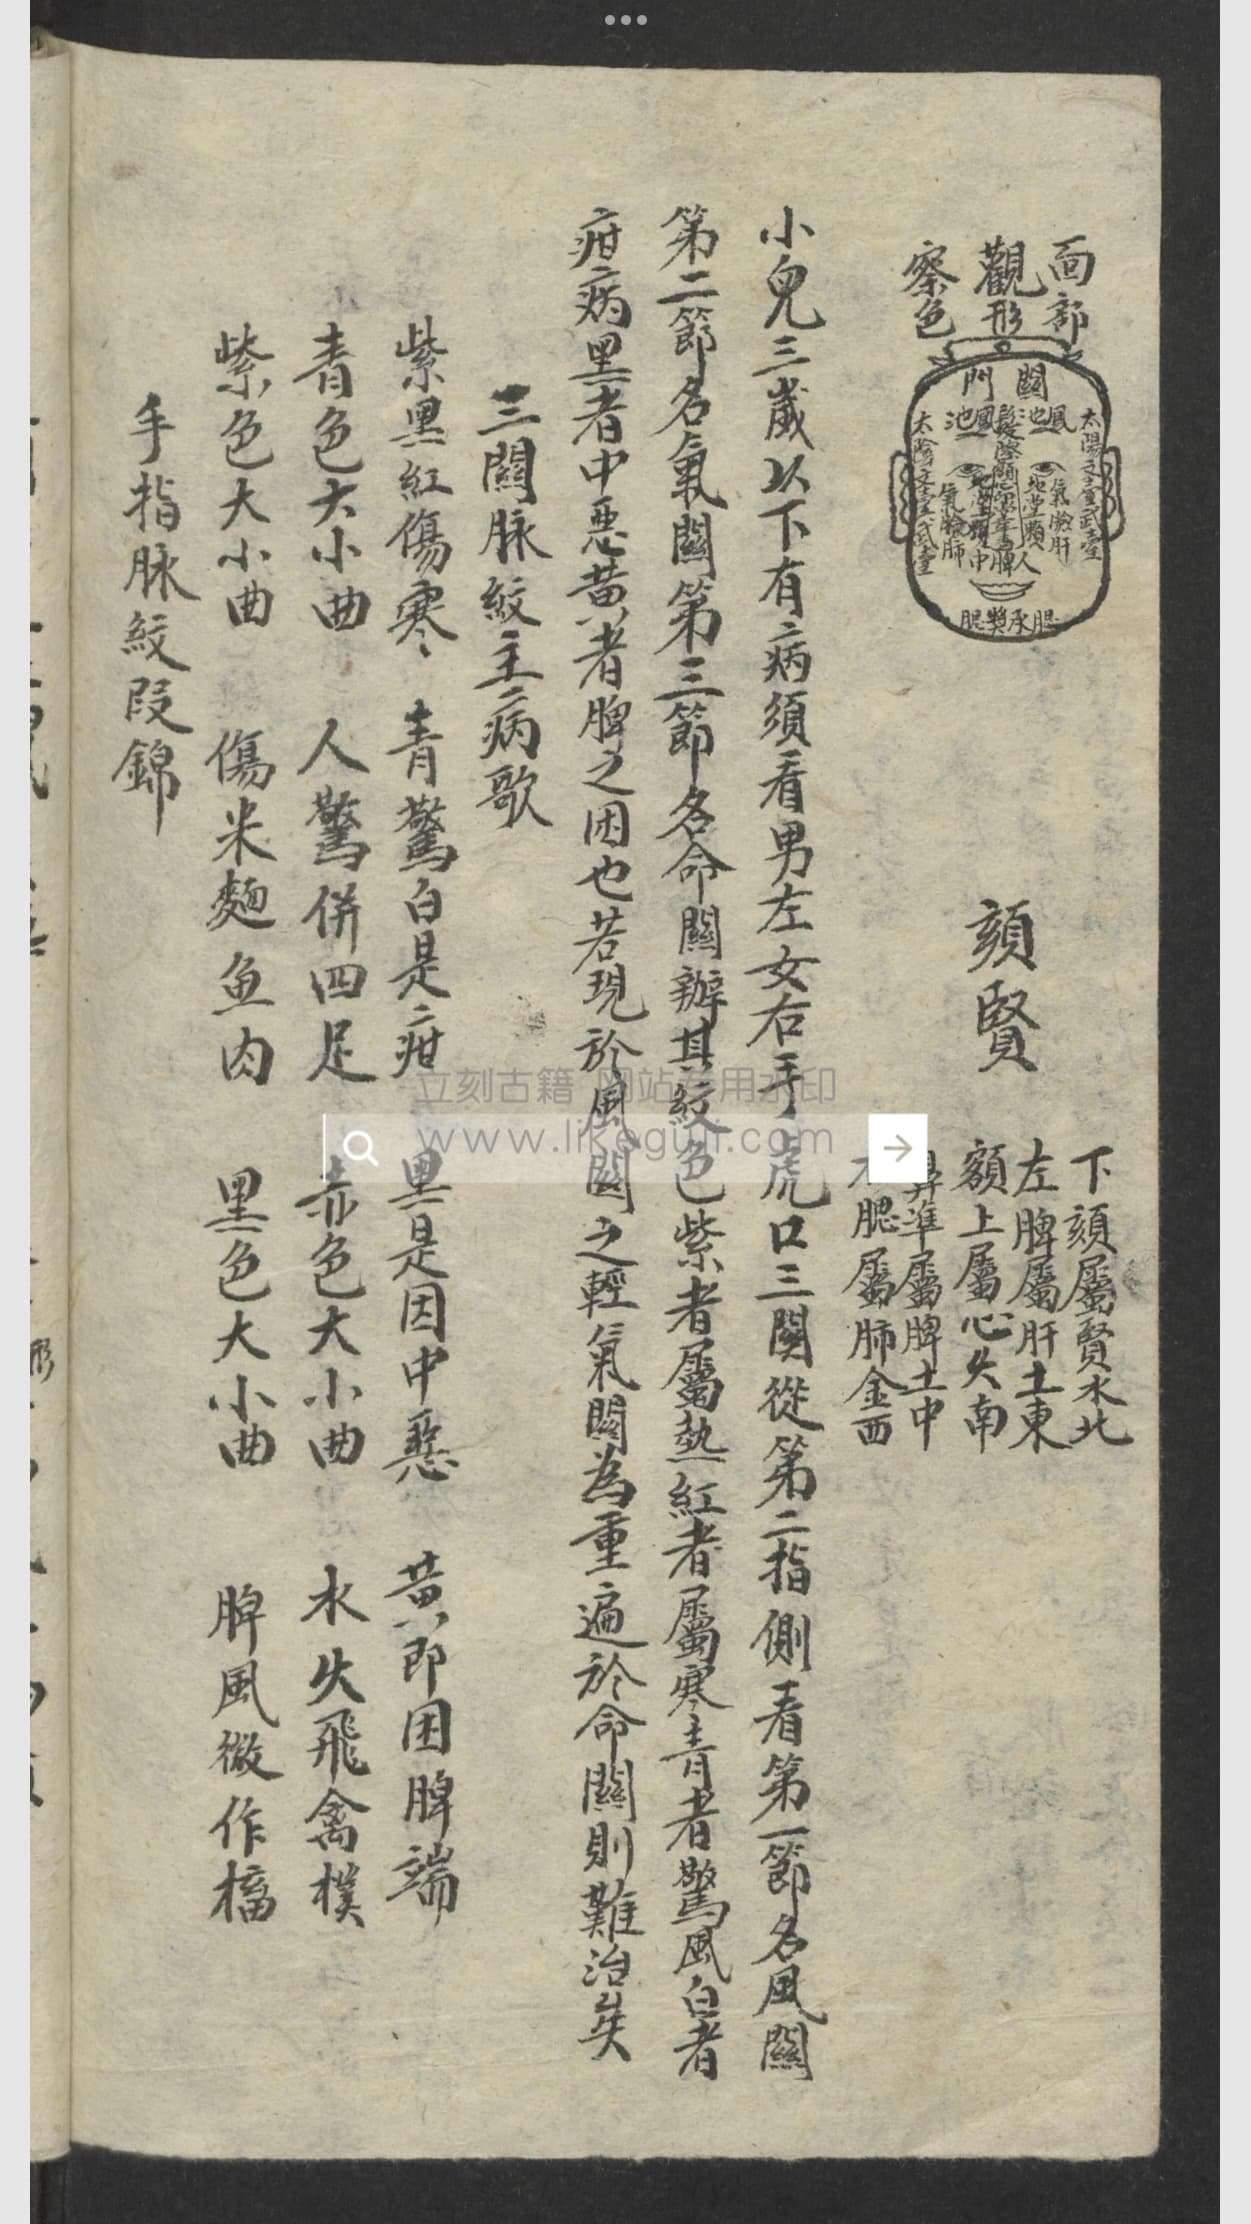 面部
觀形
察色
關門
鳳池
鳳池
太陽文臺武臺
太陰文臺武臺
氣臉肝
氣臉肺
人中
承漿
腮
腮
頦賢
下頦屬賢水北
左脾屬肝土東
額上屬心火南
鼻準屬脾土中
腮屬肺金西
小兒三歲以下有病須看男左女右手虎口三関從第二指側看第一節名風關
第二節名氣關第三節名命關辨其紋色紫者屬熱紅者屬寒青者驚風白者
疳病黑者中惡黃者脾之困也若現於風關之輕氣關為重遍於命關則難治矣
三關脉紋主病歌
紫黑紅傷寒、 青驚白是疳 黑是因中惡 黃即困脾端
青色大小曲 人驚併四足 赤色大小曲 水火飛禽樸
紫色大小曲 傷米麵魚肉 黑色大小曲 脾風微作搐
手指脉紋叚錦
立刻古籍 网站专用水印
www.likeguji.com